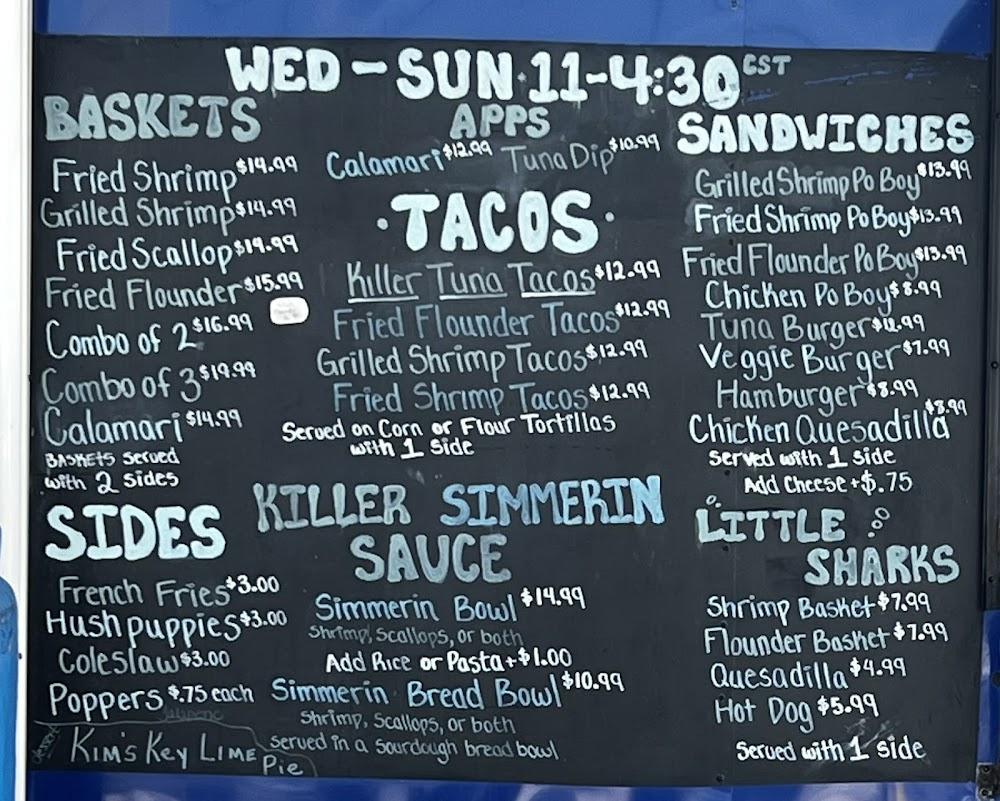 WED - SUN 11-4:30 CST
BASKETS
Fried Shrimp $14.99
Grilled Shrimp $14.99
Fried Scallop $14.99
Fried Flounder $15.99
Combo of 2 $16.99
Combo of 3 $19.99
Calamari $14.99
BASKETS served
with 2 sides
SIDES
French Fries $3.00
Hush puppies $3.00
Coleslaw $3.00
Poppers $.75 each
Jalapeno
Dessert
KIM'S KEY LIME
Pie
APPS
Calamari $12.99 Tuna Dip $10.99
·TACOS·
Killer Tuna Tacos $12.99
Fried Flounder Tacos $12.99
Grilled Shrimp Tacos $12.99
Fried Shrimp Tacos $12.99
Served on Corn or Flour Tortillas
with 1 Side
KILLER SIMMERIN
SAUCE
Simmerin Bowl $14.99
Shrimp, Scallops, or both
Add Rice or Pasta +$1.00
Simmerin Bread Bowl $10.99
Shrimp, Scallops, or both
served in a sourdough bread bowl
SANDWICHES
Grilled Shrimp Po Boy $13.99
Fried Shrimp Po Boy $13.99
Fried Flounder Po Boy $13.99
Chicken Po Boy $8.99
Tuna Burger
Veggie Burger $7.99
Hamburger $8.99
Chicken Quesadilla $8.99
Served with 1 side
Add Cheese +$.75
LITTLE
SHARKS
Shrimp Basket $7.99
Flounder Basket $7.99
Quesadilla $4.99
Hot Dog $5.99
Served with 1 side